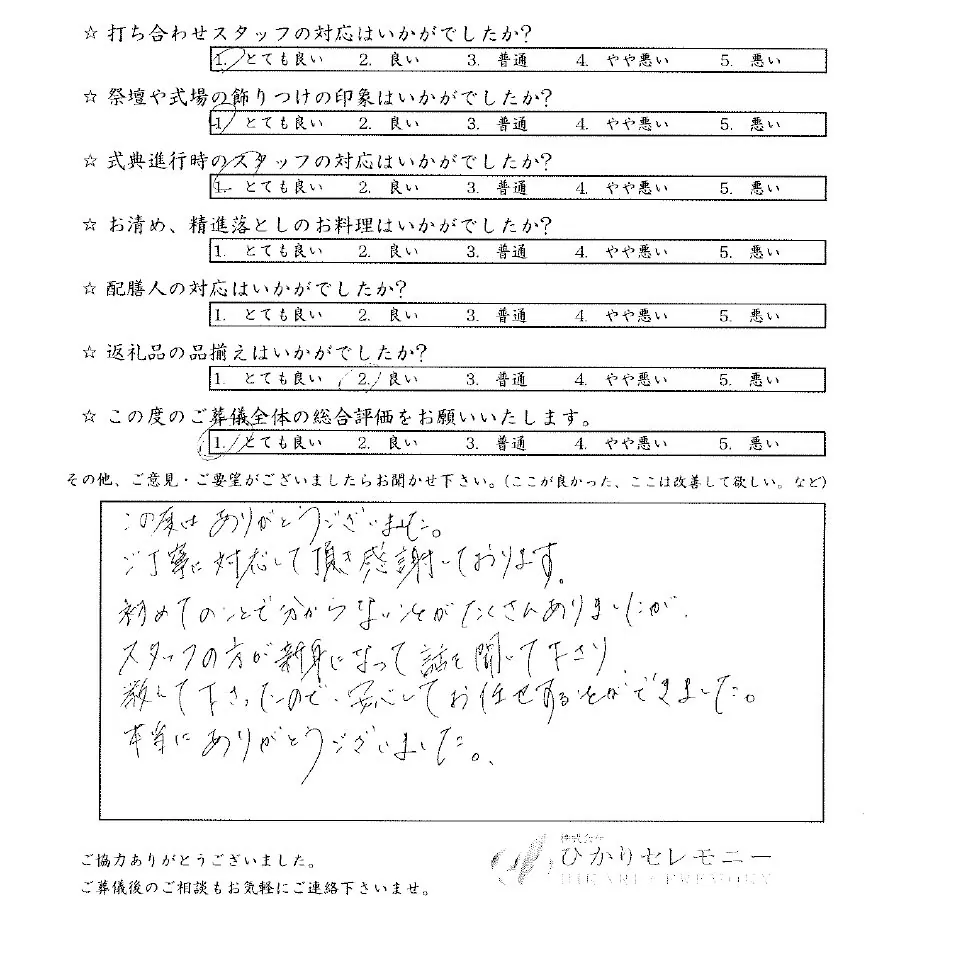 ☆ 打ち合わせスタッフの対応はいかがでしたか?
1. とても良い 2. 良い 3. 普通 4. やや悪い 5. 悪い
☆ 祭壇や式場の飾りつけの印象はいかがでしたか?
1. とても良い 2. 良い 3. 普通 4. やや悪い 5. 悪い
☆ 式典進行時のスタッフの対応はいかがでしたか?
1. とても良い 2. 良い 3. 普通 4. やや悪い 5. 悪い
☆ お清め、精進落としのお料理はいかがでしたか?
1. とても良い 2. 良い 3. 普通 4. やや悪い 5. 悪い
☆ 配膳人の対応はいかがでしたか?
1. とても良い 2. 良い 3. 普通 4. やや悪い 5. 悪い
☆ 返礼品の品揃えはいかがでしたか?
1. とても良い 2. 良い 3. 普通 4. やや悪い 5. 悪い
☆ この度のご葬儀全体の総合評価をお願いいたします。
1. とても良い 2. 良い 3. 普通 4. やや悪い 5. 悪い
その他、ご意見・ご要望がございましたらお聞かせ下さい。(ここが良かった、ここは改善して欲しい。など)
この度は ありがとうございました。
ご丁寧に対応して頂き感謝しております。
初めてのことで分からないことがたくさんありましたが、
スタッフの方が親身になって話を聞いて下さり
教えて下さったので、安心してお任せすることができました。
本当にありがとうございました。
ご協力ありがとうございました。
ご葬儀後のご相談もお気軽にご連絡下さいませ。
株式会社
ひかりセレモニー
HIKARI CEREMONY